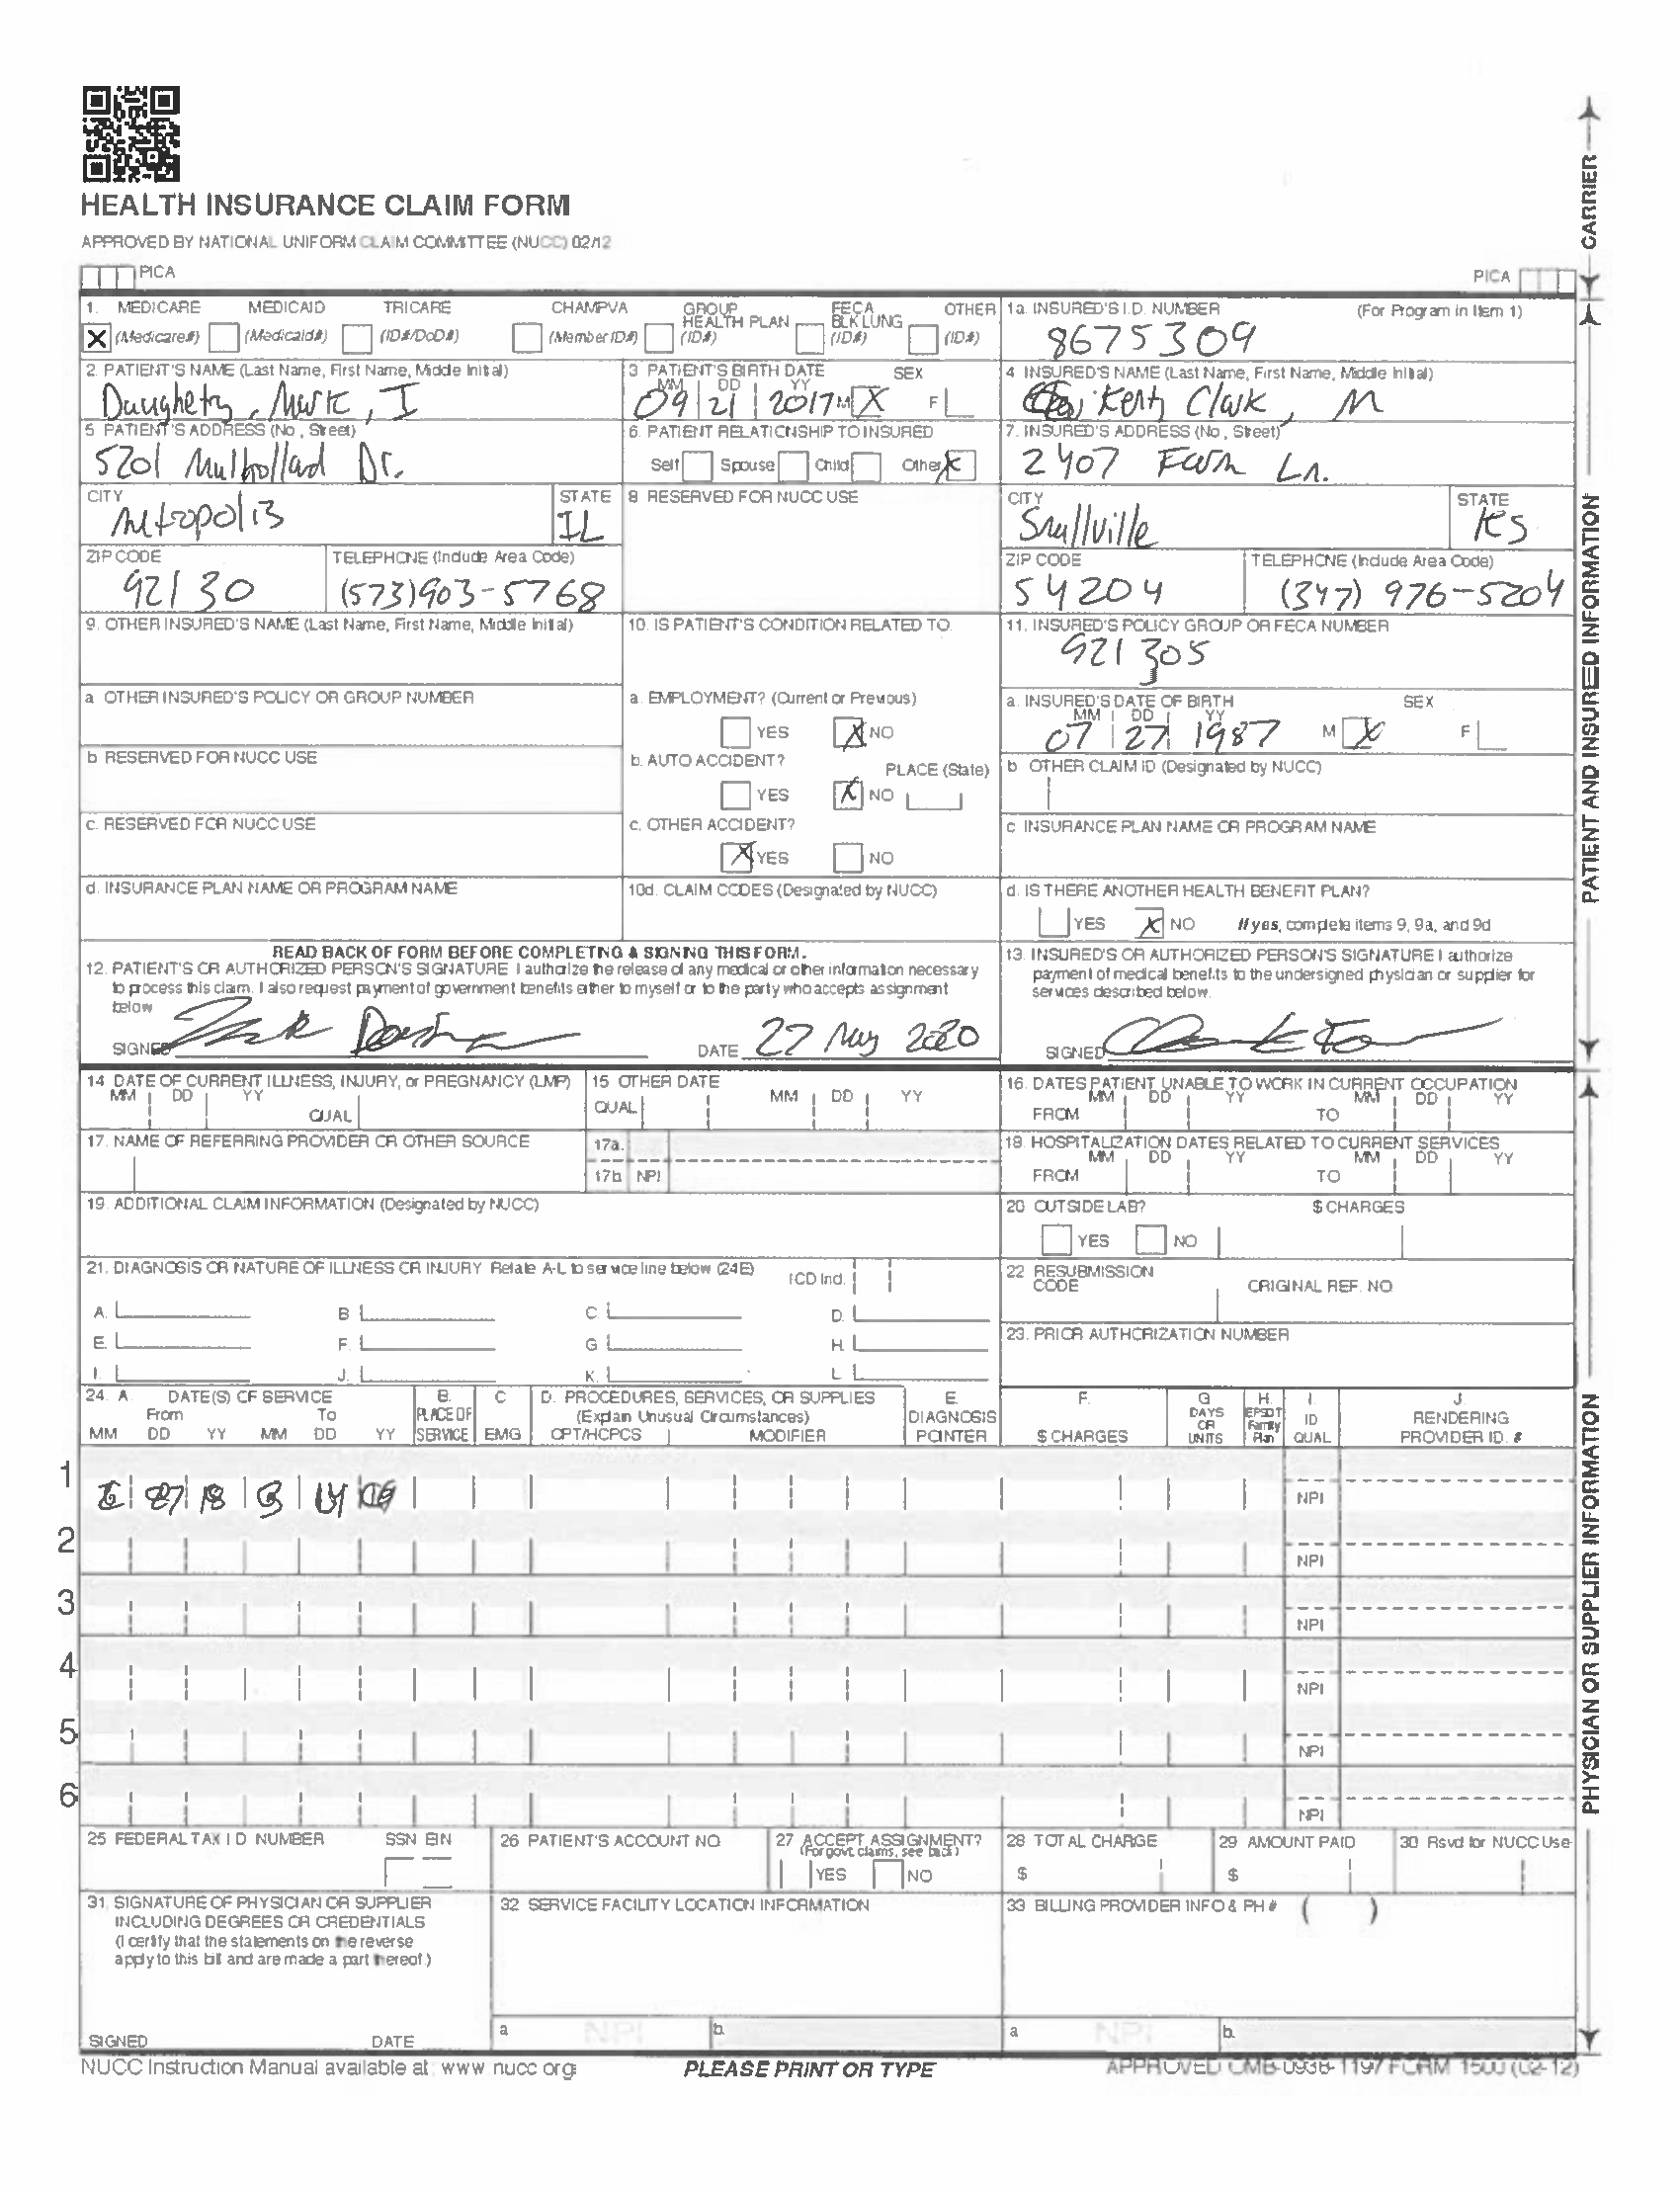 HEALTH INSURANCE CLAIM FORM
APPROVED BY NATIONAL UNIFORM CLAIM COMMITTEE (NUCC) 02/12
PICA
PICA
CARRIER
1. MEDICARE MEDICAID TRICARE CHAMPVA GROUP HEALTH PLAN FECA BLK LUNG OTHER
X (Medicare#) (Medicaid#) (ID#/DoD#) (Member ID#) (ID#) (ID#) (ID#)
1a. INSURED'S I.D. NUMBER (For Program in Item 1)
8675309
2. PATIENT'S NAME (Last Name, First Name, Middle Initial)
Daughety, Mark, I
3 PATIENT'S BIRTH DATE SEX
MM DD YY
09 21 2017 M X F
4 INSURED'S NAME (Last Name, First Name, Middle Initial)
Kent, Clark, M
5 PATIENT'S ADDRESS (No, Street)
5201 Mulhollad Dr.
6. PATIENT RELATIONSHIP TO INSURED
Self Spouse Child Other X
7. INSURED'S ADDRESS (No, Street)
2407 Farm Ln.
CITY
Metropolis
STATE
IL
8 RESERVED FOR NUCC USE
CITY
Smallville
STATE
KS
ZIP CODE
92130
TELEPHONE (Include Area Code)
(573)903-5768
ZIP CODE
54204
TELEPHONE (Include Area Code)
(347) 976-5204
9. OTHER INSURED'S NAME (Last Name, First Name, Middle Initial)
10. IS PATIENT'S CONDITION RELATED TO
11. INSURED'S POLICY GROUP OR FECA NUMBER
921305
a OTHER INSURED'S POLICY OR GROUP NUMBER
a. EMPLOYMENT? (Current or Previous)
YES X NO
a. INSURED'S DATE OF BIRTH SEX
MM DD YY
07 27 1987 M X F
b RESERVED FOR NUCC USE
b. AUTO ACCIDENT? PLACE (State)
YES X NO
b OTHER CLAIM ID (Designated by NUCC)
c. RESERVED FOR NUCC USE
c. OTHER ACCIDENT?
X YES NO
c INSURANCE PLAN NAME OR PROGRAM NAME
d. INSURANCE PLAN NAME OR PROGRAM NAME
10d. CLAIM CODES (Designated by NUCC)
d. IS THERE ANOTHER HEALTH BENEFIT PLAN?
YES X NO If yes, complete items 9, 9a, and 9d
READ BACK OF FORM BEFORE COMPLETING & SIGNING THIS FORM.
12. PATIENT'S OR AUTHORIZED PERSON'S SIGNATURE I authorize the release of any medical or other information necessary
to process this claim. I also request payment of government benefits either to myself or to the party who accepts assignment
below
SIGNED DATE 27 May 2020
13. INSURED'S OR AUTHORIZED PERSON'S SIGNATURE I authorize
payment of medical benefits to the undersigned physician or supplier for
services described below.
SIGNED
PATIENT AND INSURED INFORMATION
14 DATE OF CURRENT ILLNESS, INJURY, or PREGNANCY (LMP)
MM DD YY QUAL
15 OTHER DATE
QUAL MM DD YY
16. DATES PATIENT UNABLE TO WORK IN CURRENT OCCUPATION
MM DD YY MM DD YY
FROM TO
17. NAME OF REFERRING PROVIDER OR OTHER SOURCE
17a.
17b NPI
18. HOSPITALIZATION DATES RELATED TO CURRENT SERVICES
MM DD YY MM DD YY
FROM TO
19. ADDITIONAL CLAIM INFORMATION (Designated by NUCC)
20 OUTSIDE LAB? $ CHARGES
YES NO
21. DIAGNOSIS OR NATURE OF ILLNESS OR INJURY Relate A-L to service line below (24E) ICD Ind.
A. B C. D.
E. F. G H.
I. J. K. L.
22 RESUBMISSION CODE ORIGINAL REF. NO
23. PRIOR AUTHORIZATION NUMBER
24. A DATE(S) OF SERVICE B. C D. PROCEDURES, SERVICES, OR SUPPLIES E. F. G H. I. J.
From To PLACE OF (Explain Unusual Circumstances) DIAGNOSIS DAYS OR EPSDT Family ID RENDERING
MM DD YY MM DD YY SERVICE EMG CPT/HCPCS MODIFIER POINTER $ CHARGES UNITS Plan QUAL PROVIDER ID. #
1 NPI
2 NPI
3 NPI
4 NPI
5 NPI
6 NPI
25 FEDERAL TAX I D NUMBER SSN EIN
26 PATIENT'S ACCOUNT NO
27 ACCEPT ASSIGNMENT?
(For govt. claims, see back)
YES NO
28 TOTAL CHARGE
$
29 AMOUNT PAID
$
30 Rsvd for NUCC Use
31. SIGNATURE OF PHYSICIAN OR SUPPLIER
INCLUDING DEGREES OR CREDENTIALS
(I certify that the statements on the reverse
apply to this bill and are made a part thereof.)
SIGNED DATE
32 SERVICE FACILITY LOCATION INFORMATION
a NPI b.
33 BILLING PROVIDER INFO & PH # ( )
a NPI b.
PHYSICIAN OR SUPPLIER INFORMATION
NUCC Instruction Manual available at: www nucc org
PLEASE PRINT OR TYPE
APPROVED OMB-0938-1197 FORM 1500 (02-12)